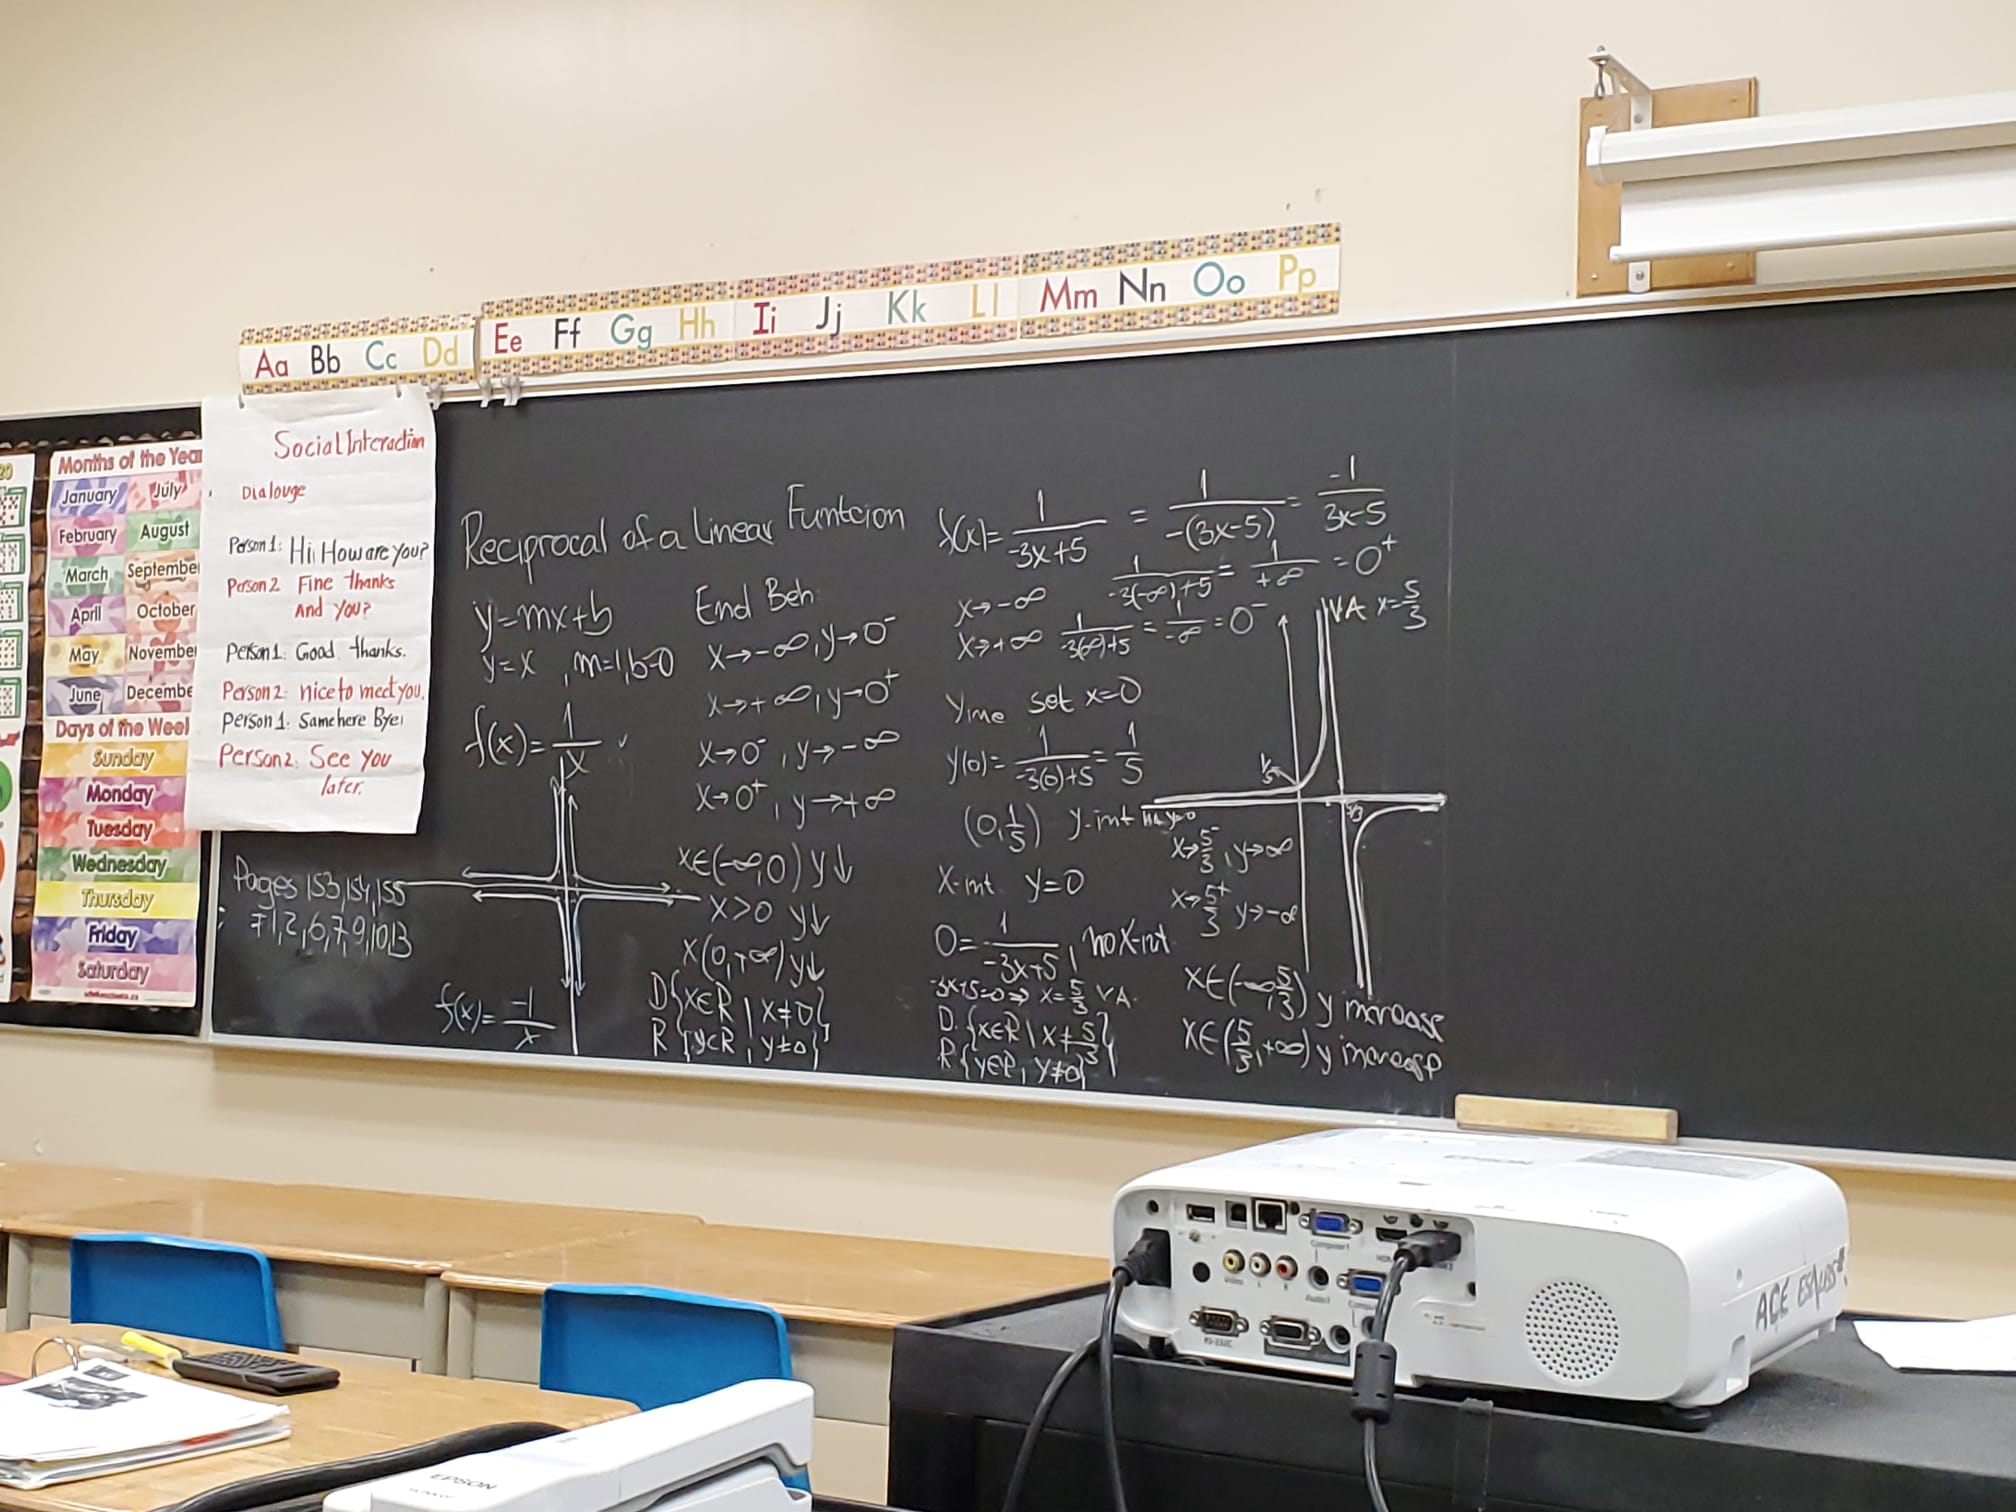 Aa Bb Cc Dd Ee Ff Gg Hh Ii Jj Kk Ll Mm Nn Oo Pp
20
Months of the Year
January July
February August
March September
April October
May November
June December
Days of the Week
Sunday
Monday
Tuesday
Wednesday
Thursday
Friday
Saturday
Social Interaction
Dialouge
Person1: Hi How are you?
Person2 Fine thanks
And you?
Person1: Good thanks.
Person2: nice to meet you.
Person1: Same here Bye!
Person2: See you
later.
Pages 153, 154, 155
1, 2, 6, 7, 9, 10, 13
Reciprocal of a Linear Funtcion
y=mx+b
y=x , m=1, b=0
f(x)=1/x
f(x)=-1/x
End Beh:
x→-∞, y→0⁻
x→+∞, y→0⁺
x→0⁻, y→-∞
x→0⁺, y→+∞
x∈(-∞,0) y↓
x>0 y↓
x(0,+∞) y↓
D{x∈R | x≠0}
R{y∈R, y≠0}
f(x)=1/(-3x+5) = 1/(-(3x-5)) = -1/(3x-5)
x→-∞ 1/(-3(-∞)+5) = 1/+∞ = 0⁺
x→+∞ 1/(-3(∞)+5) = 1/-∞ = 0⁻
set x=0
y(0)=1/(-3(0)+5)=1/5
(0,1/5) y-int
x-int y=0
0=1/(-3x+5), no x-int
-3x+5=0 ⇒ x=5/3 VA.
D. {x∈R | x≠5/3}
R{y∈R, y≠0}
VA x=5/3
1/5
5/3
HA y=0
x→5/3⁻, y→∞
x→5/3⁺ y→-∞
x∈(-∞,5/3) y increase
x∈(5/3,+∞) y increase
EPSON
Computer1
Video
L
R
Audio1
RS-232C
ACE
EPSON